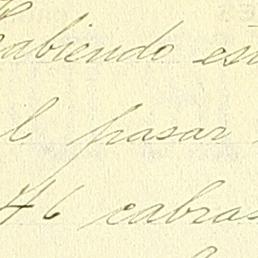 Habiendo est
l pasar
46 cabras